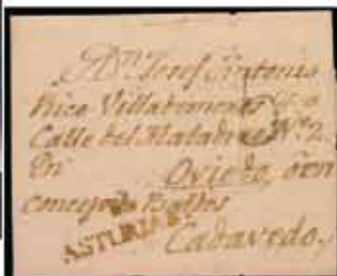 A Dn. Josef Antonio
Rico Villademoros
Calle del Matadero Nº 2
En Oviedo, ó en
concejo de Baldes
ASTURIAS
Cadavedo,